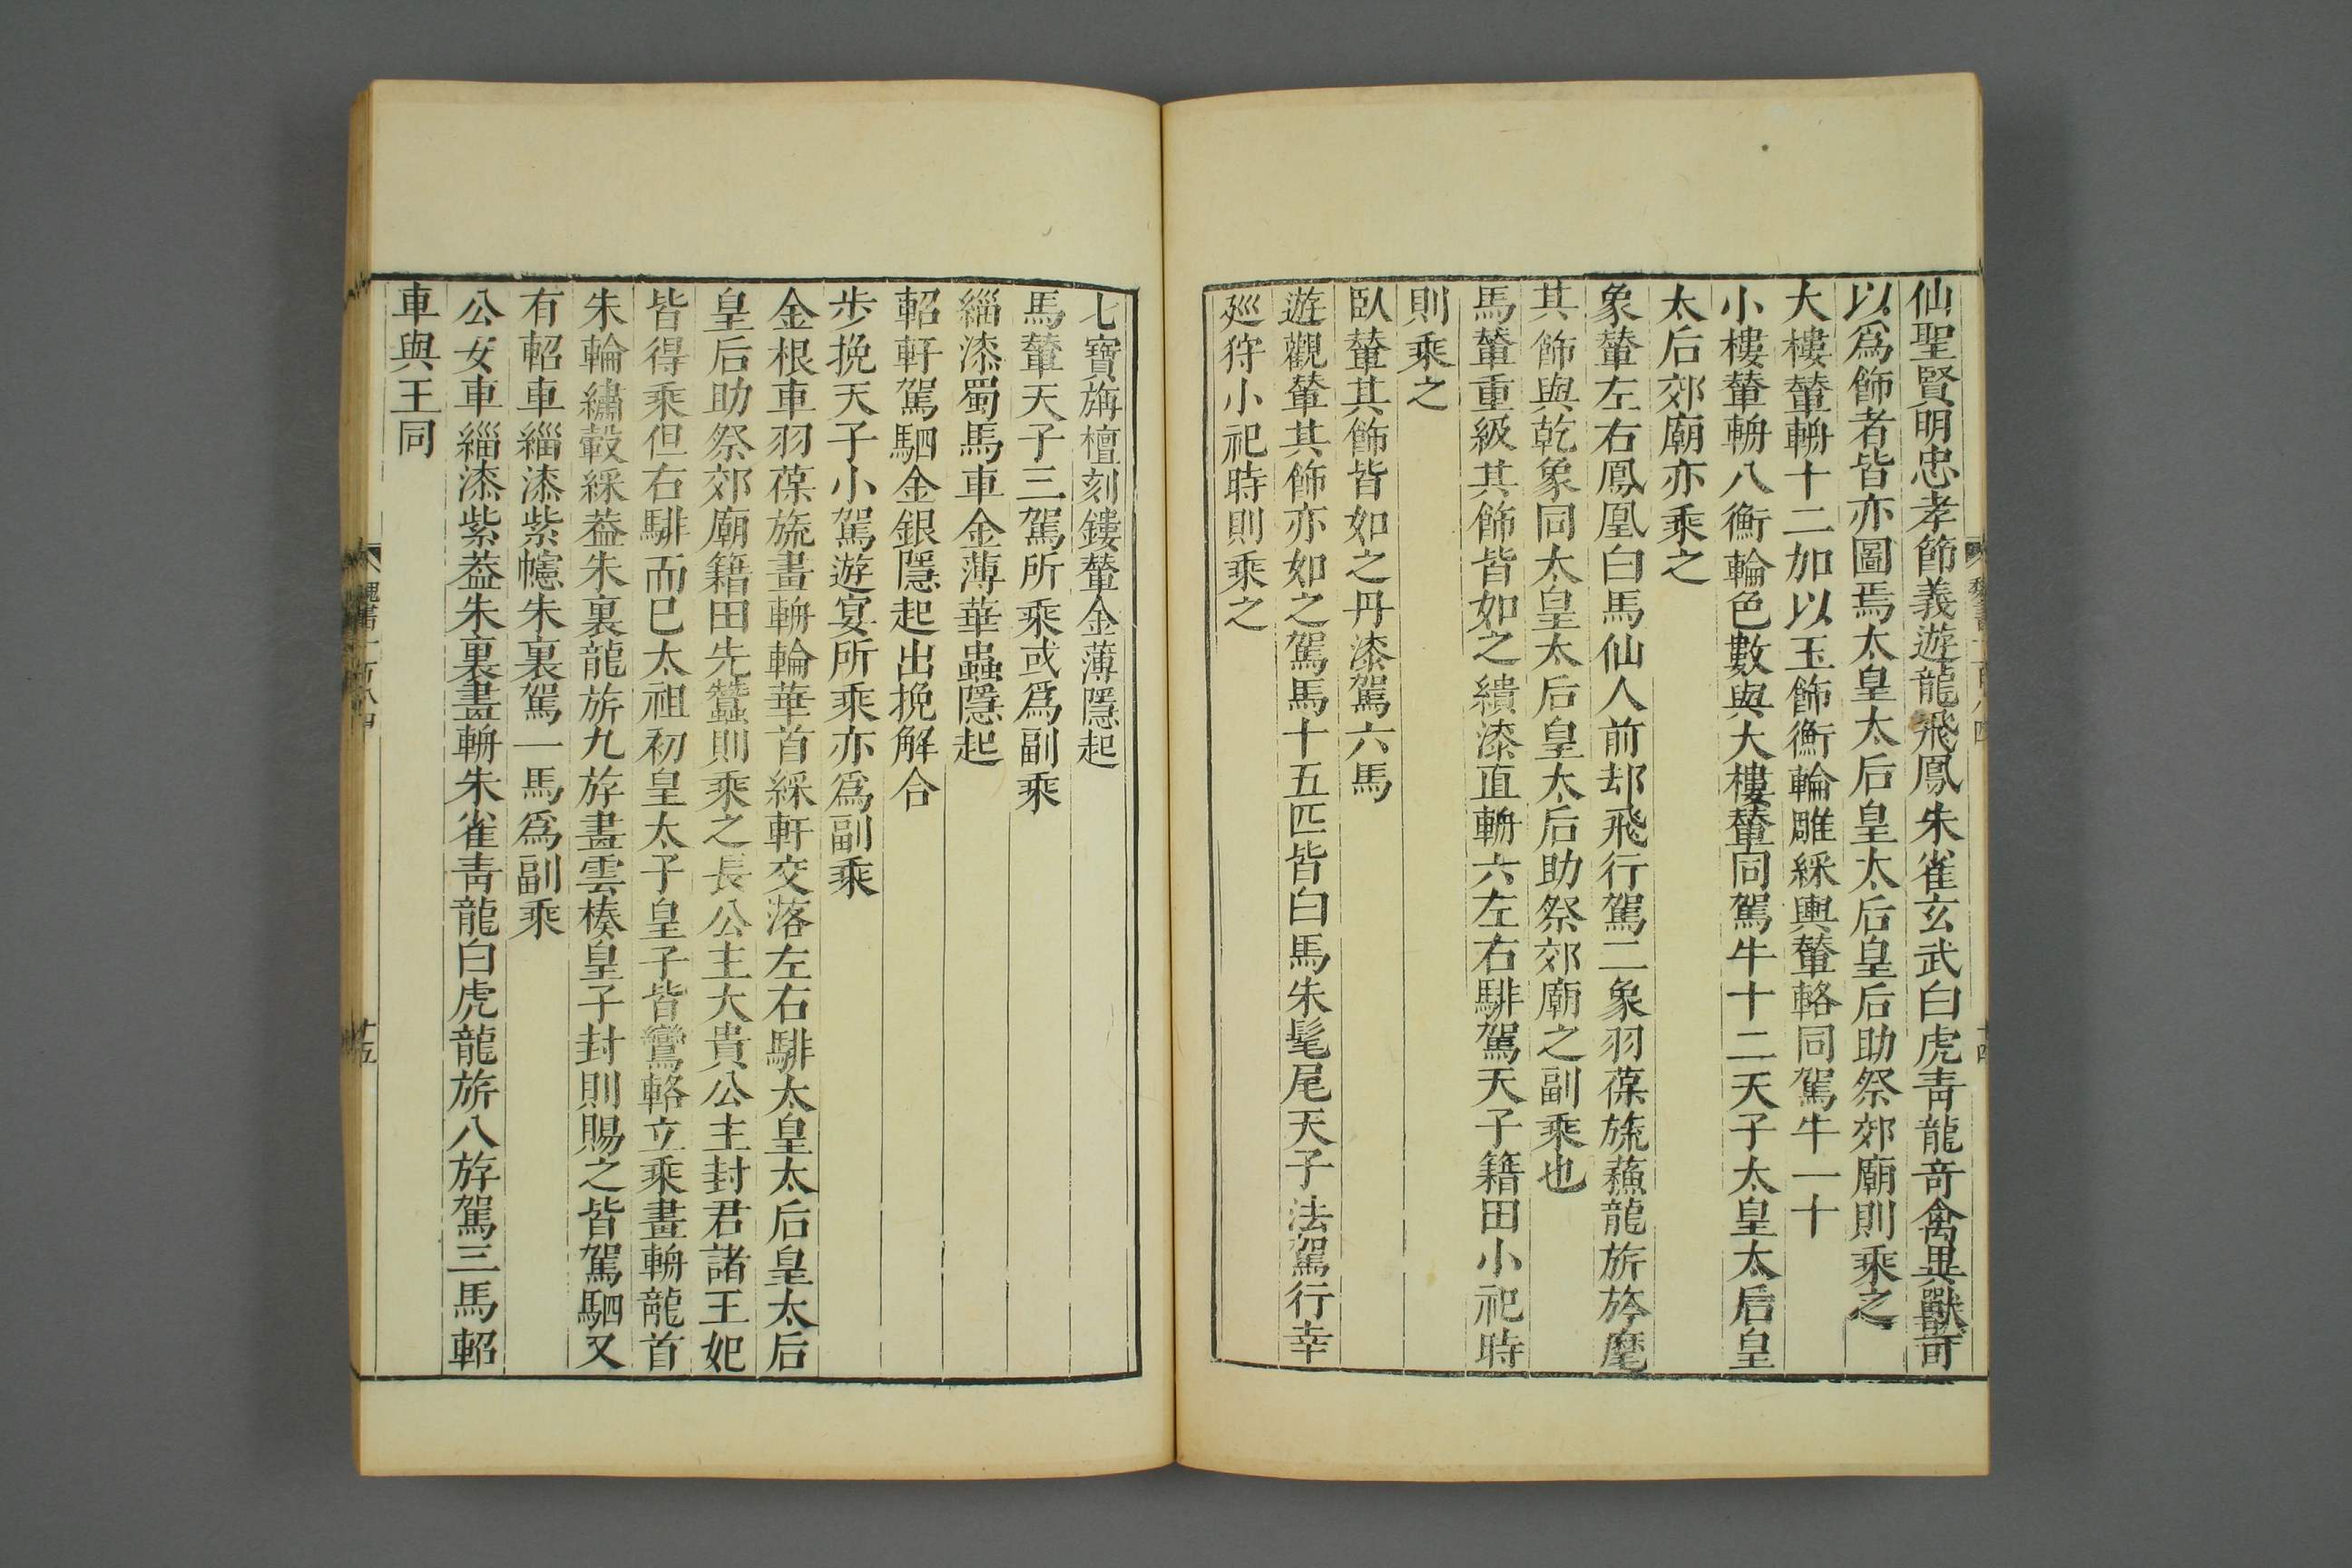 仙聖賢明忠孝節義遊龍飛鳳朱雀玄武白虎青龍奇禽異獸可
以爲飾者皆亦圖焉太皇太后皇太后皇后助祭郊廟則乘之
大樓輦輈十二加以玉飾衡輪雕綵輿輦輅同駕牛一十
小樓輦輈八衡輪色數與大樓輦同駕牛十二天子太皇太后皇
太后郊廟亦乘之
象輦左右鳳凰白馬仙人前却飛行駕二象羽葆旒蘇龍旂旍麾
其飾與乾象同太皇太后皇太后助祭郊廟之副乘也
馬輦重級其飾皆如之繢漆直輈六左右騑駕天子籍田小祀時
則乘之
臥輦其飾皆如之丹漆駕六馬
遊觀輦其飾亦如之駕馬十五匹皆白馬朱髦尾天子法駕行幸
廵狩小祀時則乘之
魏書一百八四
十四
七寶旃檀刻鏤輦金薄隱起
馬輦天子三駕所乘或爲副乘
緇漆蜀馬車金薄華蟲隱起
軺軒駕駟金銀隱起出挽解合
步挽天子小駕遊宴所乘亦爲副乘
金根車羽葆旒畫輈輪華首綵軒交落左右騑太皇太后皇太后
皇后助祭郊廟籍田先蠶則乘之長公主大貴公主封君諸王妃
皆得乘但右騑而已太祖初皇太子皇子皆鸞輅立乘畫輈龍首
朱輪繡轂綵葢朱裏龍旂九斿畫雲楱皇子封則賜之皆駕駟又
有軺車緇漆紫幰朱裏駕一馬爲副乘
公安車緇漆紫葢朱裏畫輈朱雀青龍白虎龍旂八斿駕三馬軺
車與王同
魏書一百八四
十五